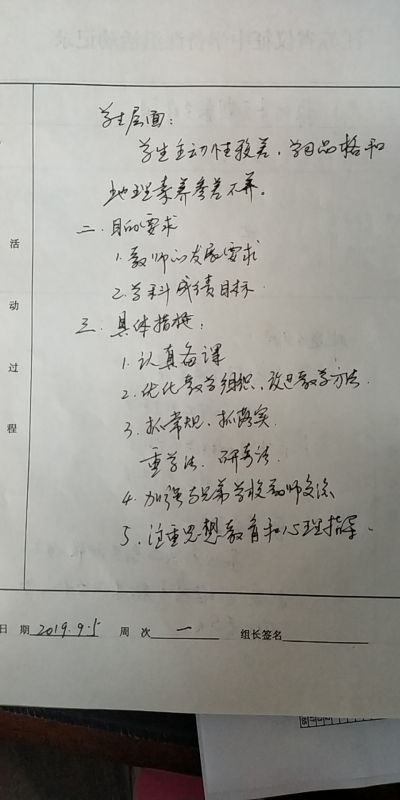 学生层面:
学生主动性较差,学习品格和
地理素养参差不齐。
二.目的要求
1.教师的发展要求
2.学科成绩目标
三.具体措施:
1.认真备课
2.优化教学组织,改进教学方法.
3.抓常规.抓落实
重学法.研考法
4.加强与兄弟学校教师交流
5.注重思想教育和心理指导.
活动过程
日 期 2019.9.5 周 次 一 组长签名